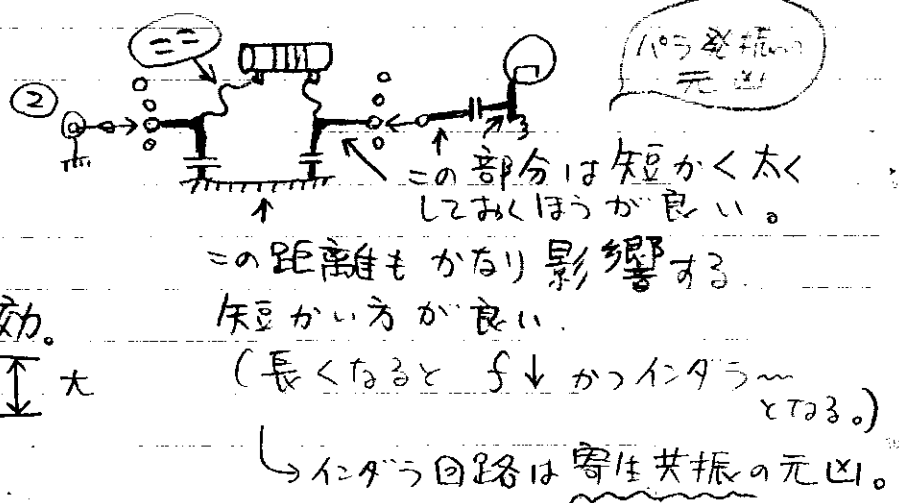 パラ発振の
元凶
②
この部分は短かく太く
しておくほうが良い。
この距離もかなり影響する
短かい方が良い.
効。
大
(長くなると f↓ かつインダラ〜
となる。)
↳インダラ回路は寄生共振の元凶。